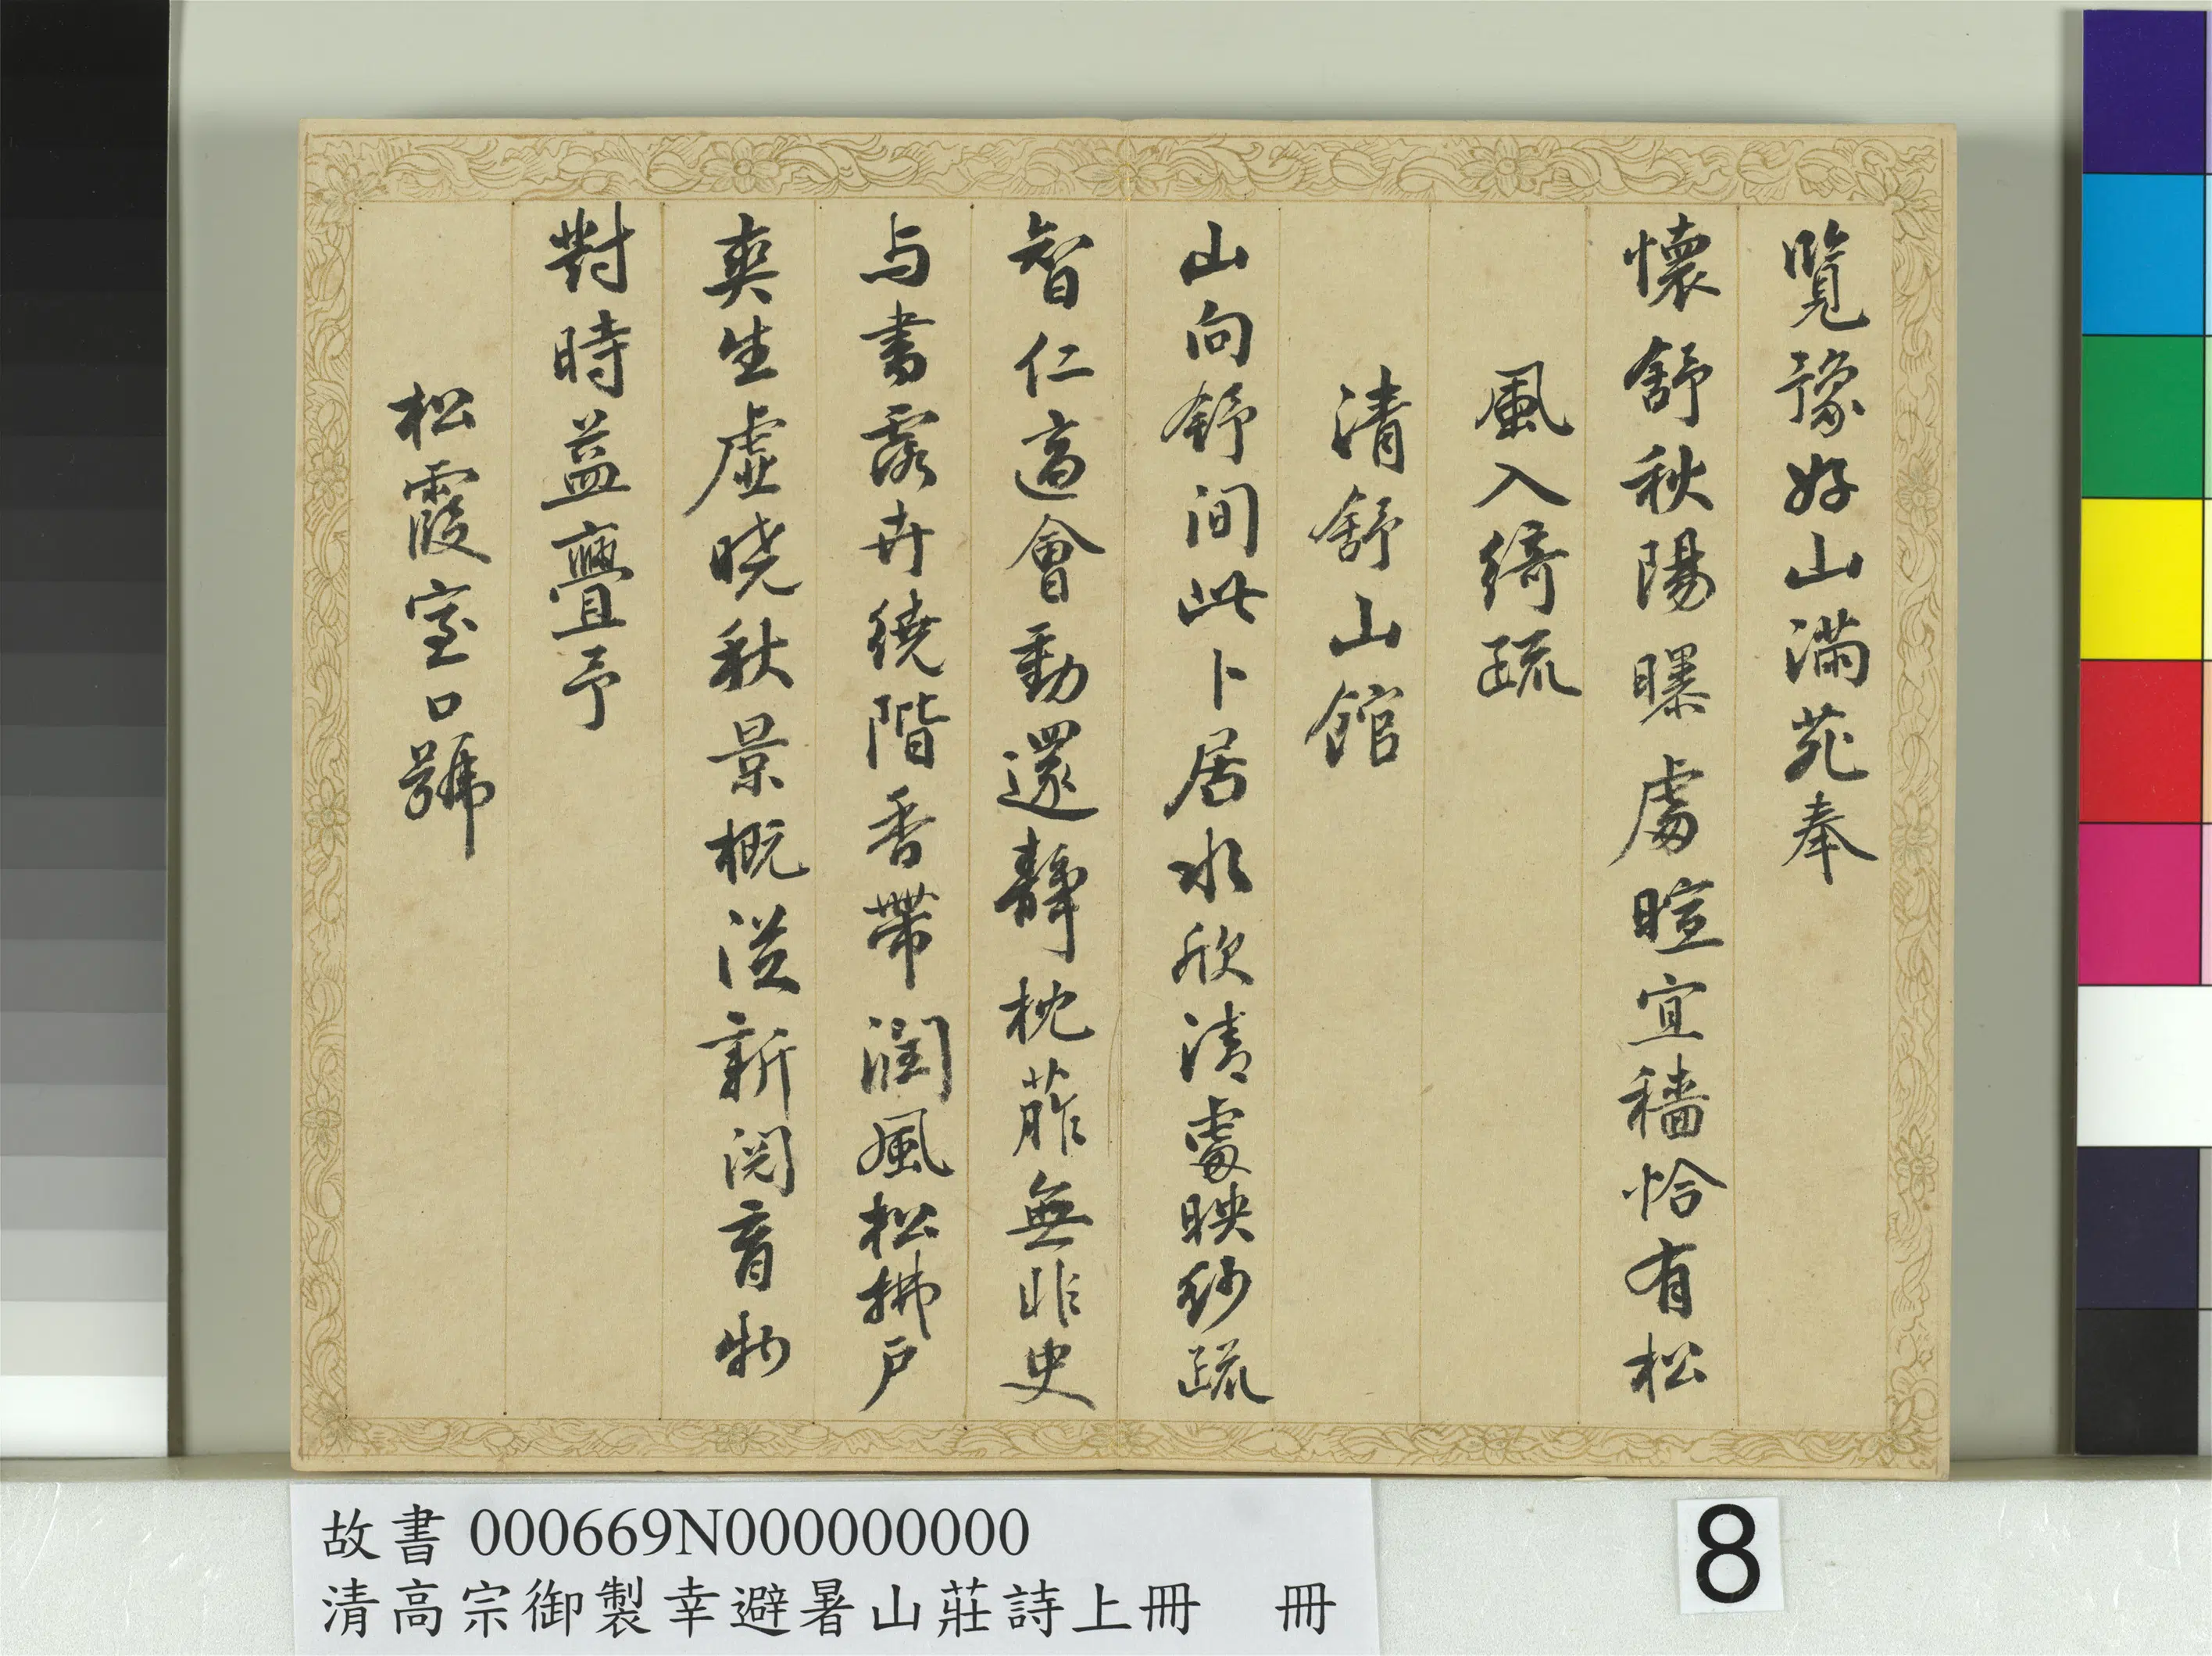 覽豫好山滿苑奉
懷舒秋陽曝處暄宜穡恰有松
風入綺疏
清舒山館
山向舒間此卜居水欣清處映紗疏
智仁適會動還靜枕葄無非史
与書露卉繞階香帶潤風松拂戶
爽生虛曉秋景概從新閱育物
對時益亹予
松霞室口號
故書 000669N000000000
清高宗御製幸避暑山莊詩上冊 冊
8